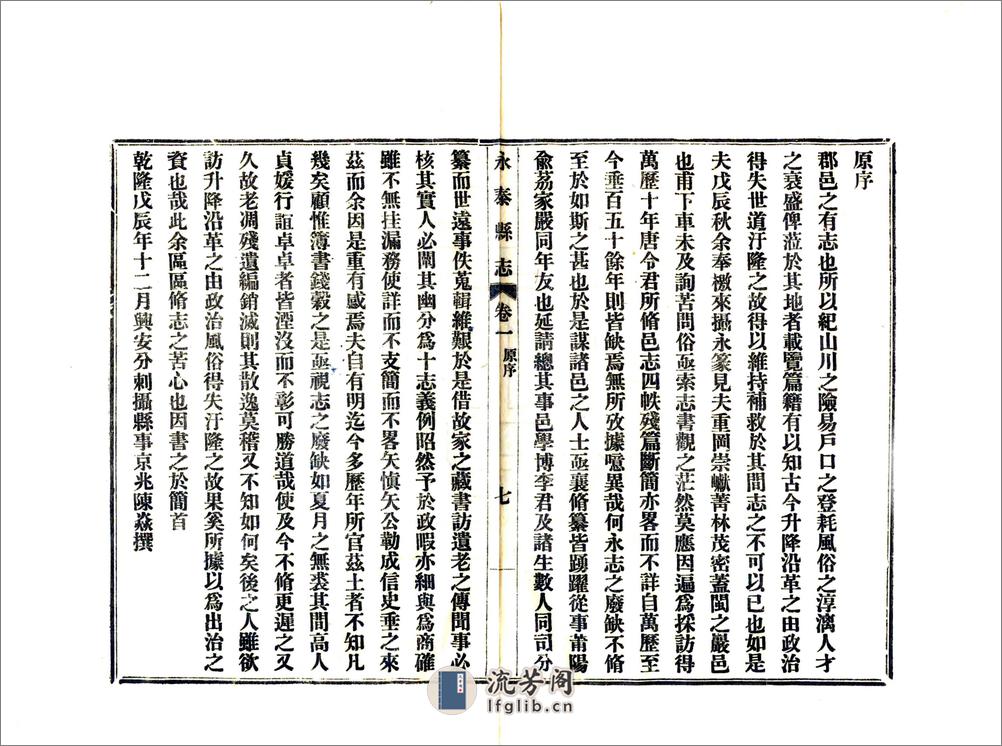 原序
郡邑之有志也所以紀山川之險易戶口之登耗風俗之淳漓人才
之衰盛俾蒞於其地者載覽篇籍有以知古今升降沿革之由政治
得失世道汙隆之故得以維持補救於其間志之不可以已也如是
夫戊辰秋余奉檄來攝永篆見夫重岡崇巘菁林茂密蓋閩之嚴邑
也甫下車未及詢苦問俗亟索志書觀之茫然莫應因遍為採訪得
萬歷十年唐令君所脩邑志四帙殘篇斷簡亦畧而不詳自萬歷至
今垂百五十餘年則皆缺焉無所攷據噫異哉何永志之廢缺不脩
至於如斯之甚也於是謀諸邑之人士亟襄脩纂皆踴躍從事莆陽
俞荔家嚴同年友也延請總其事邑學博李君及諸生數人同司分
永泰縣志
卷一
原序
七
纂而世遠事佚蒐輯維艱於是借故家之藏書訪遺老之傳聞事必
核其實人必闡其幽分為十志義例昭然予於政暇亦細與為商確
雖不無挂漏務使詳而不支簡而不畧矢慎矢公勒成信史垂之來
茲而余因是重有感焉夫自有明迄今多歷年所官茲土者不知凡
幾矣顧惟簿書錢穀之是亟視志之廢缺如夏月之無裘其間高人
貞媛行誼卓卓者皆湮沒而不彰可勝道哉使及今不脩更遲之又
久故老凋殘遺編銷滅則其散逸莫稽又不知如何矣後之人雖欲
訪升降沿革之由政治風俗得失汙隆之故果奚所據以為出治之
資也哉此余區區脩志之苦心也因書之於簡首
乾隆戊辰年十二月興安分刺攝縣事京兆陳焱撰
流芳阁
lfglib.cn